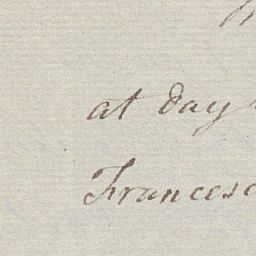 at day
Francesc